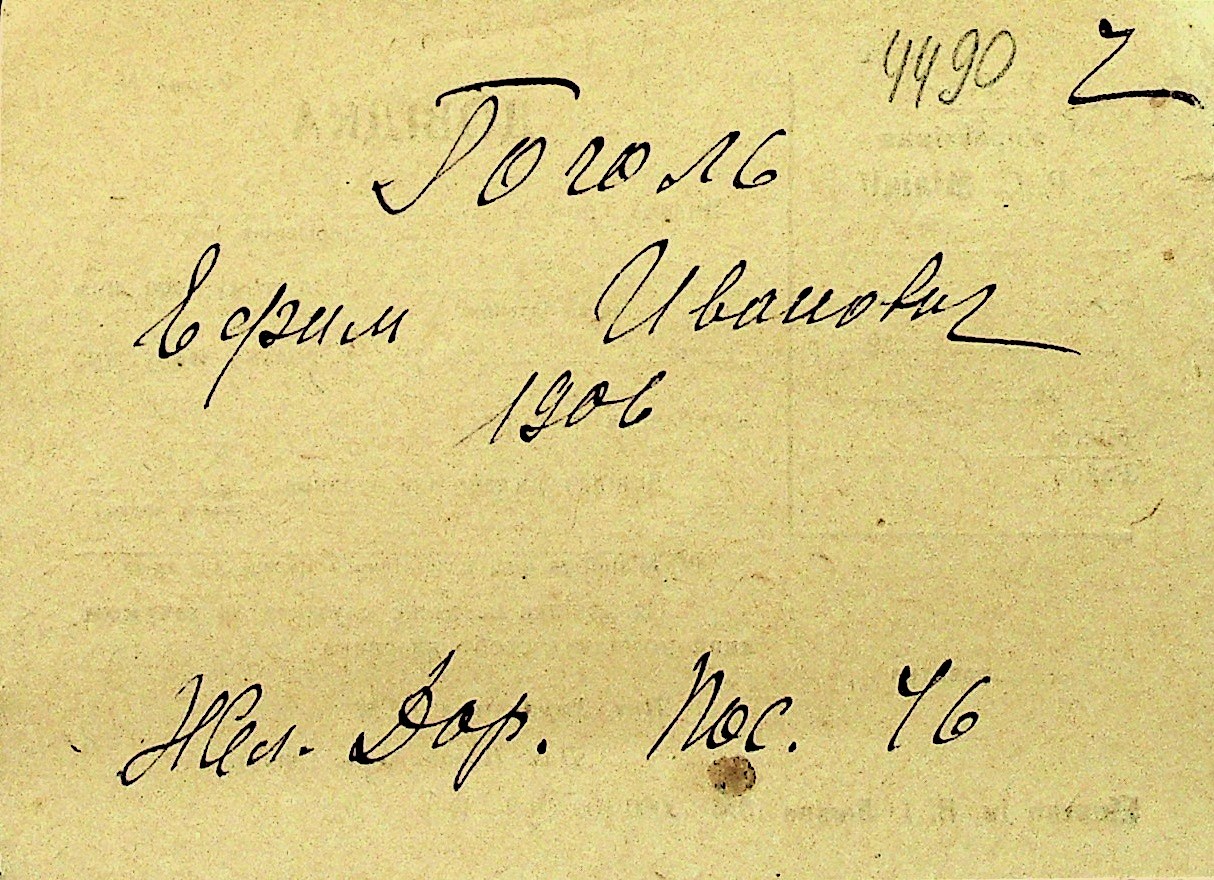 4490 Ч
Гоголь
Ефим Иванович
1906
Жел. Дор. Пос. 46